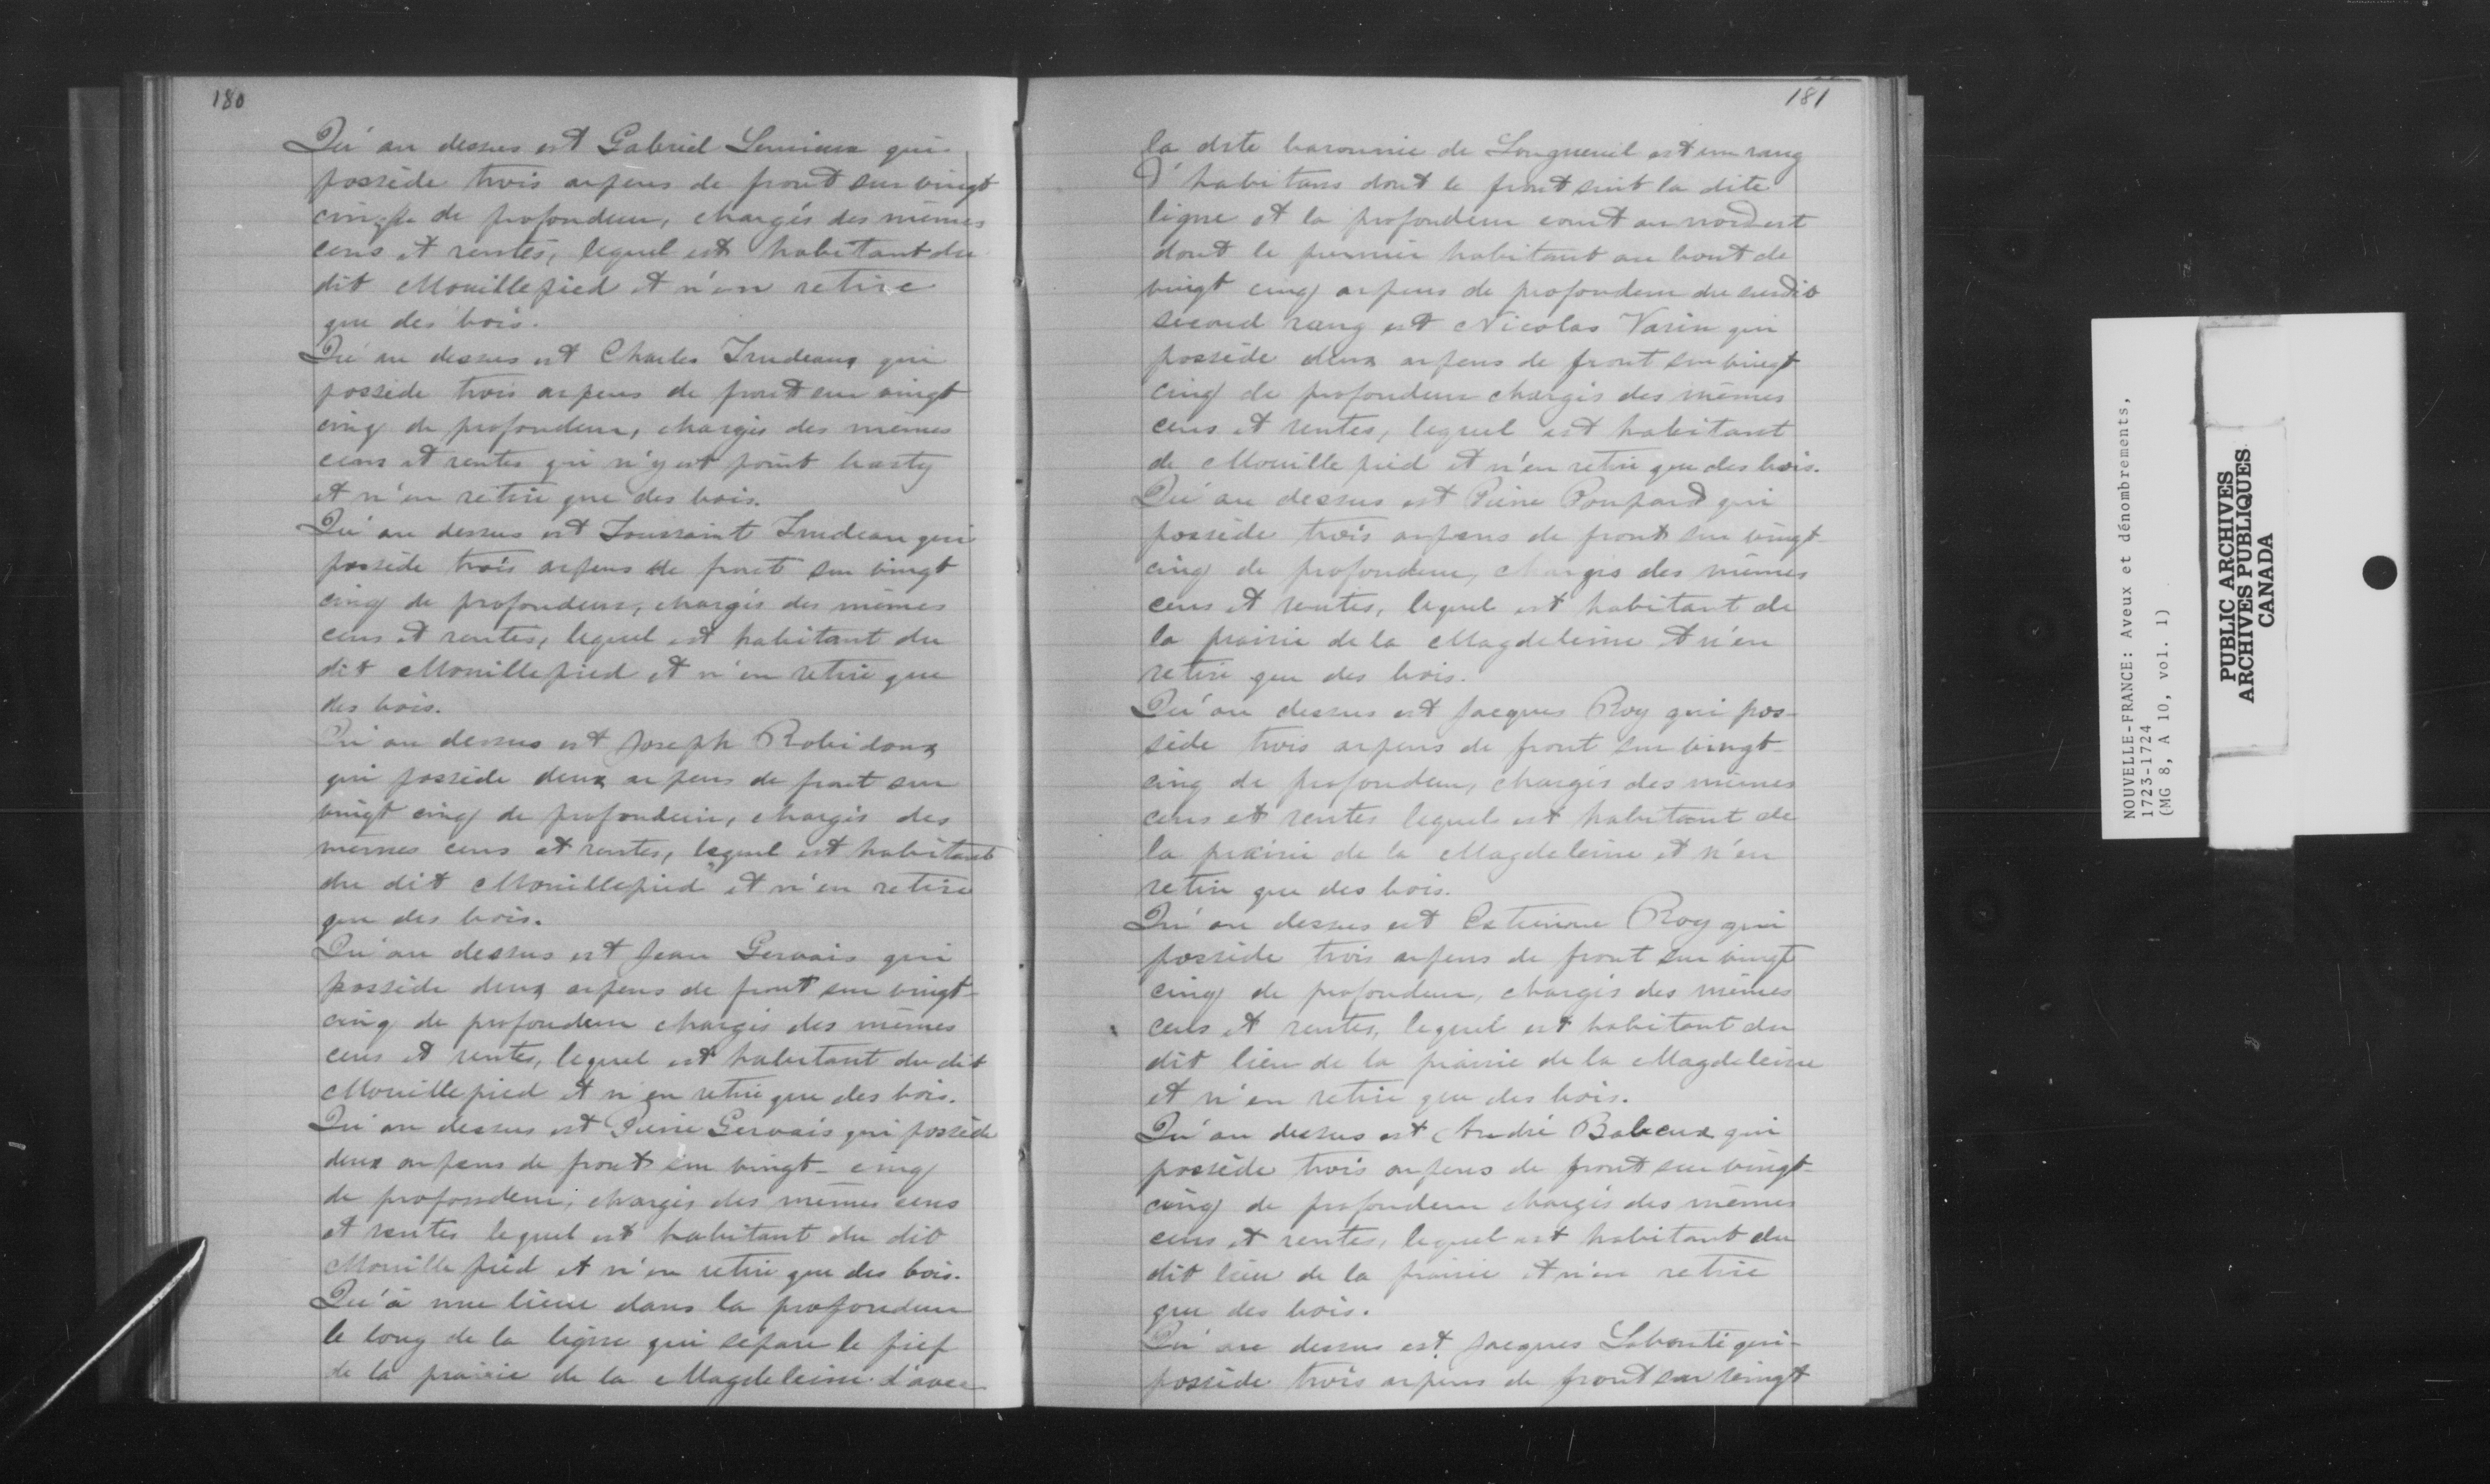 180
Qu'au dessus est Gabriel Lemieux qui
possède trois arpens de front sur vingt
cinq de profondeur, chargés des mêmes
cens et rentes, lequel est habitant du
dit Mouillepied et n'en retire
que des bois.
Qu'au dessus est Charles Trudeaux qui
possède trois arpens de front sur vingt
cinq de profondeur, chargés des mêmes
cens et rentes qui n'y est point basty
et n'en retire que des bois.
Qu'au dessus est Toussaint Trudeau qui
possède trois arpens de front sur vingt
cinq de profondeur, chargés des mêmes
cens et rentes, lequel est habitant du
dit Mouillepied et n'en retire que
des bois.
Qu'au dessus est Joseph Robidoux
qui possède deux arpens de front sur
vingt cinq de profondeur, chargés des
mêmes cens et rentes, lequel est habitant
du dit Mouillepied et n'en retire
que des bois.
Qu'au dessus est Jean Gervais qui
possède deux arpens de front sur vingt-
cinq de profondeur chargés des mêmes
cens et rentes, lequel est habitant du dit
Mouillepied et n'en retire que des bois.
Qu'au dessus est Pierre Gervais qui possède
deux arpens de front sur vingt-cinq
de profondeur, chargés des mêmes cens
et rentes lequel est habitant du dit
Mouille pied et n'en retire que des bois.
Qu'à une lieue dans la profondeur
le long de la ligne qui sépare le fief
de la prairie de la Magdeleine d'avec
181
la dite baronnie de Longueuil est un rang
d'habitans dont le front suit la dite
ligne et la profondeur court au nord est
dont le premier habitant au bout de
vingt cinq arpens de profondeur du susdit
second rang est Nicolas Varin qui
possède deux arpens de front sur vingt
cinq de profondeur chargés des mêmes
cens et rentes, lequel est habitant
de Mouille pied et n'en retire que des bois.
Qu'au dessus est Pierre Poupard qui
possède trois arpens de front sur vingt-
cinq de profondeur, chargés des mêmes
cens et rentes, lequel est habitant de
la prairie de la Magdeleine et n'en
retire que des bois.
Qu'au dessus est Jacques Roy qui pos-
sède trois arpens de front sur vingt-
cinq de profondeur, chargés des mêmes
cens et rentes lequel est habitant de
la prairie de la Magdeleine et n'en
retire que des bois.
Qu'au dessus est Estienne Roy qui
possède trois arpens de front sur vingt
cinq de profondeur, chargés des mêmes
cens et rentes, lequel est habitant du
dit lieu de la prairie de la Magdeleine
et n'en retire que des bois.
Qu'au dessus est André Babeux qui
possède trois arpens de front sur vingt-
cinq de profondeur chargés des mêmes
cens et rentes, lequel est habitant du
dit lieu de la prairie et n'en retire
que des bois.
Qu'au dessus est Jacques Labonté qui
possède trois arpens de front sur vingt
NOUVELLE-FRANCE: Aveux et dénombrements,
1723-1724
(MG 8, A 10, vol. 1)
PUBLIC ARCHIVES
ARCHIVES PUBLIQUES
CANADA